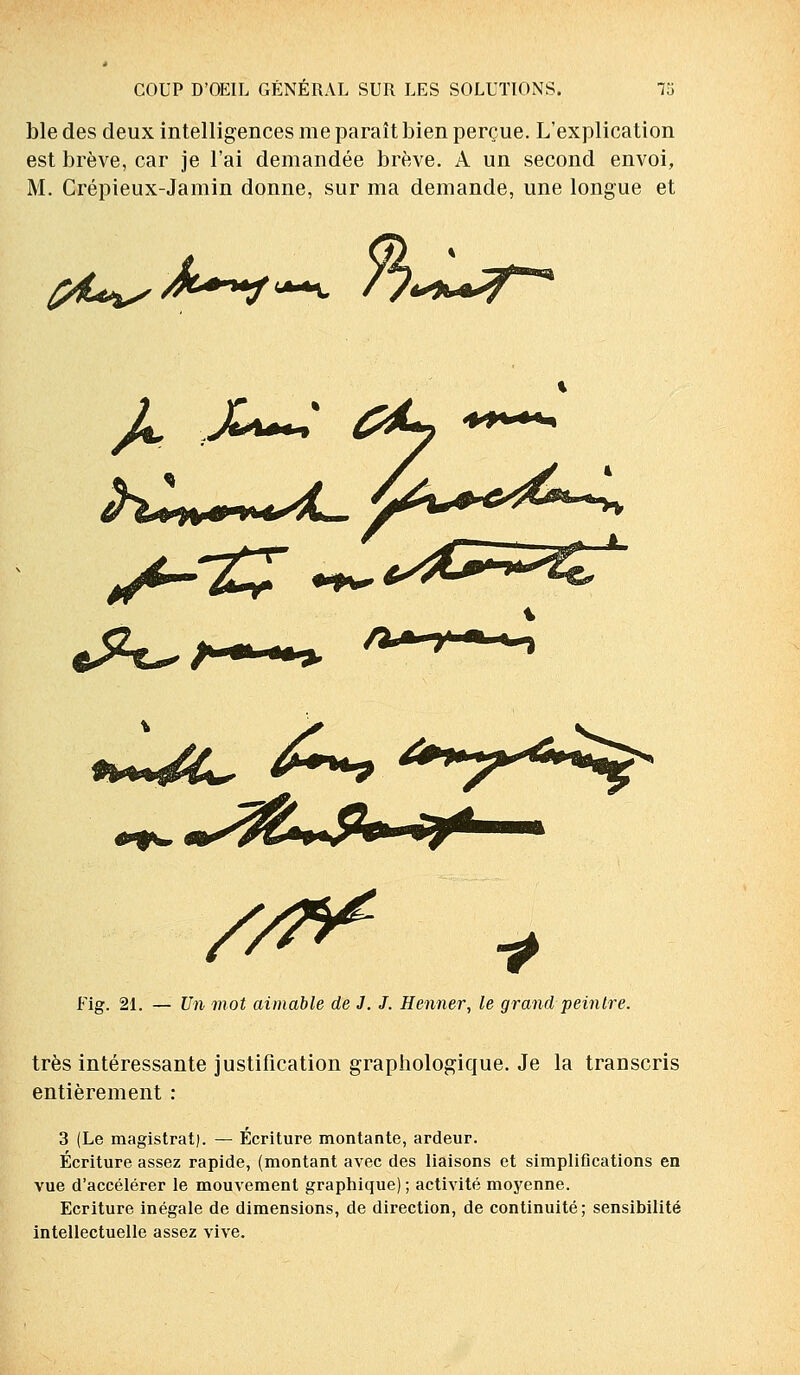 COUP D'ŒIL GÉNÉRAL SUR LES SOLUTIONS. 75
ble des deux intelligences me paraît bien perçue. L'explication
est brève, car je l'ai demandée brève. A un second envoi,
M. Crépieux-Jamin donne, sur ma demande, une longue et
cher Monsieur Binet
Je serai chez moi
Dimanche prochain
et
mille bons compliments
en attendant
Fig. 21. — Un mot aimable de J. J. Henner, le grand peintre.
très intéressante justification graphologique. Je la transcris
entièrement :
3 (Le magistrat). — Écriture montante, ardeur.
Écriture assez rapide, (montant avec des liaisons et simplifications en
vue d'accélérer le mouvement graphique) ; activité moyenne.
Ecriture inégale de dimensions, de direction, de continuité ; sensibilité
intellectuelle assez vive.